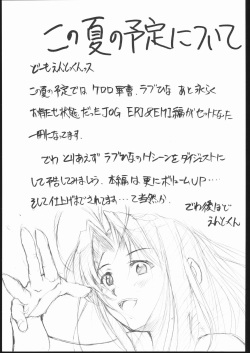 この夏の予定について
どーもえんとくんっス
この夏の予定では ケロロ軍曹、ラブひな あと永らく
お休み状態だった JOG ERI&EMI編がセットになった
一冊になってます。
でわ とりあえず ラブひなのHシーンをダイジェスト
して予告してみましょう。本編は更にボリュームUP……
そして仕上げまでされてます……て当然か。
でわ後ほど
えんとくん